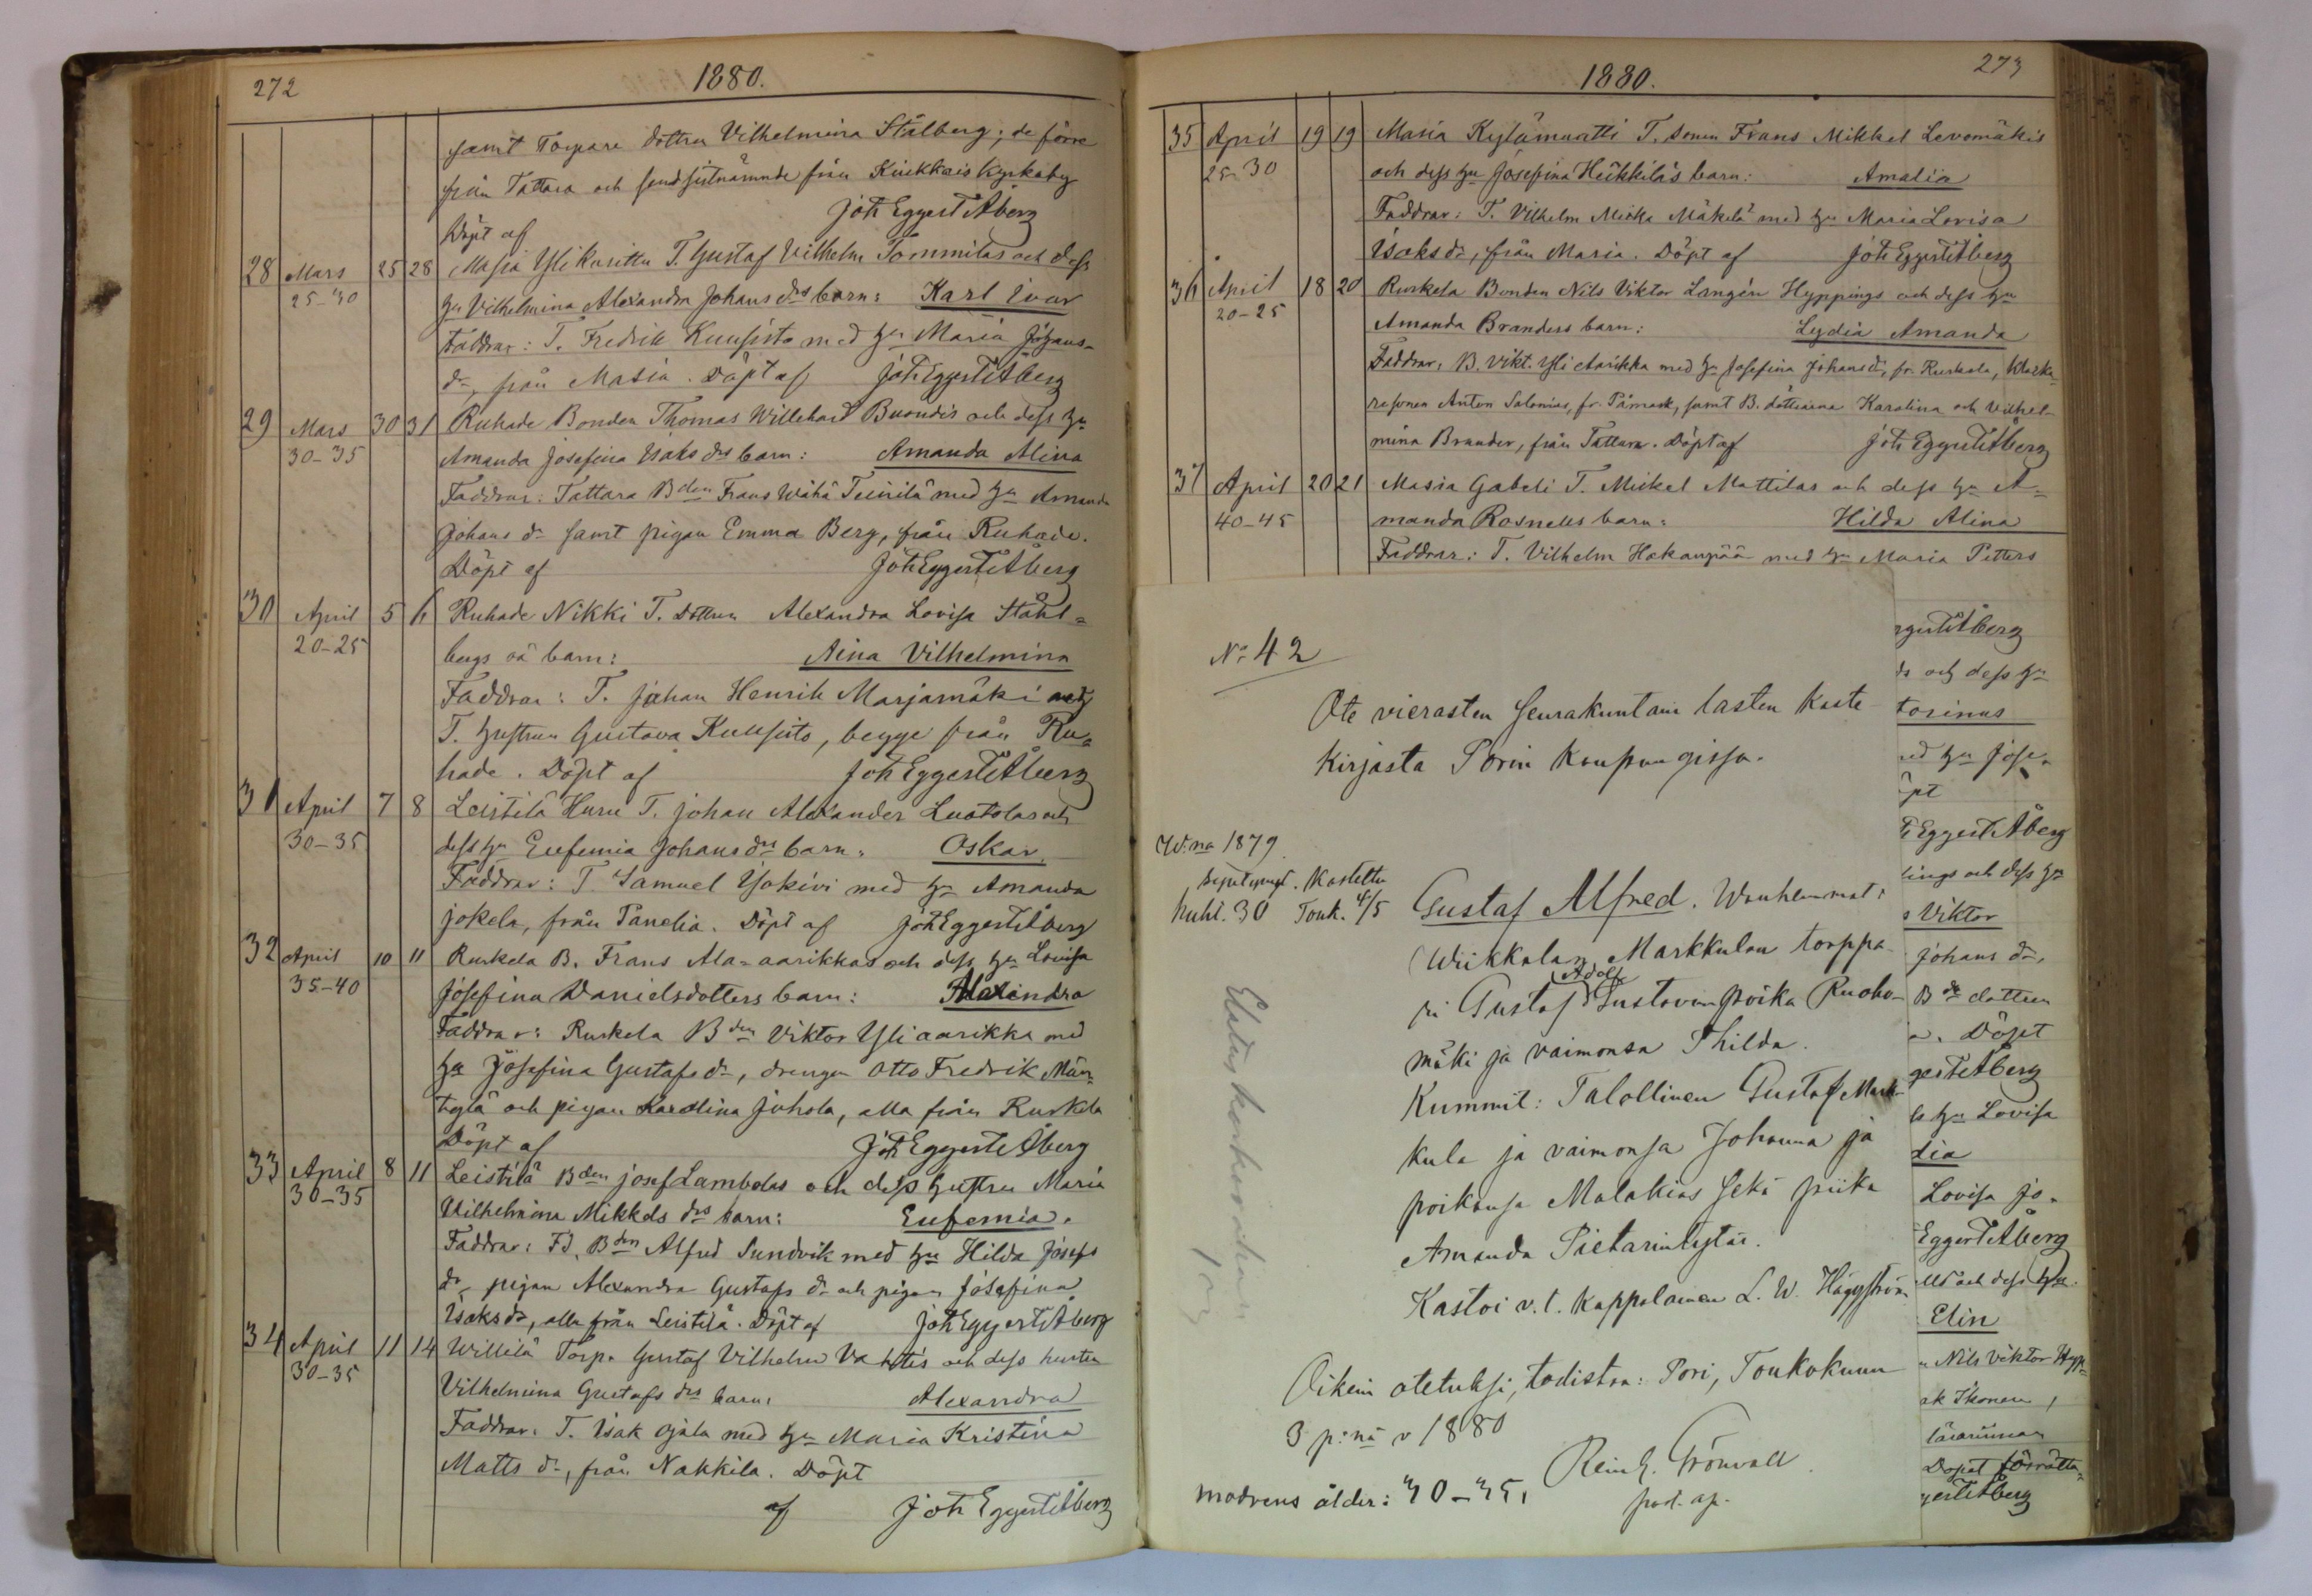 272
1880.
samt Torpare dottren Vilhelmina Stålberg; de förre
från Tattara och sendsistnämnde från Kiukkais Kyrkoby
Döpt af Joh Eggert Åberg
28 Mars 25 28 Masia Yli Karittu T. Gustaf Vilhelm Tommilas och dess
25-30 hu Vilhelmina Alexandra Johans drs barn: Karl Ivar
Faddrar: T. Fredrik Kuusisto med hu Maria Johans-
dr, från Masia. Döpt af Joh Eggert Åberg
29 Mars 30 31 Ruhade Bonden Thomas Willehard Buondis och dess hu
30-35 Amanda Josefina Isaks drs barn: Amanda Alina
Faddrar: Tattara Bden Frans Wähä Teinilä med hu Amanda
Johans dr samt pigan Emma Berg, från Ruhade.
Döpt af Joh Eggert Åberg
30 April 5 6 Ruhade Nikki T. Dottren Alexandra Lovisa Ståhl=
20-25 bergs oä barn: Aina Vilhelmina
Faddrar: T. Johan Henrik Marjamäki och
T. hustrun Gustava Kuusisto, begge från Ru=
hade. Döpt af Joh Eggert Åberg
31 April 7 8 Leistilä Huru T. Johan Alexander Luotolas och
30-35 dess hu Eufemia Johans drs barn: Oskar.
Faddrar: T. Samuel Isokivi med hu Amanda
Jokela, från Panelia. Döpt af Joh Eggert Åberg
32 April 10 11 Ruskela B. Frans Ala=aarikkas och dess hu Lovisa
35-40 Josefina Danielsdotters barn: Alexandra
Faddrar: Ruskela Bden Viktor Yli aarikka med
hu Josefina Gustafs dr, drengen Otto Fredrik Män-
tylä och pigan Karolina Juhola, alla från Ruskela
Döpt af Joh Eggert Åberg
33 April 8 11 Leistilä Bden Josef Lambolas och dess hustru Maria
30-35 Vilhelmina Mikkels drs barn: Eufemia.
Faddrar: Fd. Bden Alfred Sundvik med hu Hilda Josefs
dr, pigan Alexandra Gustafs dr och pigan Josefina
Isaks dr, alla från Leistilä. Döpt af Joh Eggert Åberg
34 April 11 14 Willilä Torp. Gustaf Vilhelm Vahtis och dess hustru
30-35 Vilhelmina Gustafs drs barn: Alexandra
Faddrar: T. Isak Ojala med hu Maria Kristina
Matts dr, från Nakkila. Döpt
af Joh Eggert Åberg
1880.
273
35 April 19 19 Masia Kylämaatti T. sonen Frans Mikkel Levomäkis
25-30 och dess hu Josefina Heikkiläs barn: Amalia
Faddrar: T. Vilhelm Mäkelä med hu Maria Lovisa
Isaks dr, från Masia. Döpt af Joh Eggert Åberg
36 April 18 20 Ruskela Bonden Nils Viktor Langén Hyppings och dess hu
20-25 Amanda Branders barn: Lydia Amanda
Faddrar: B. Vikt. Yli Aarikka med hu Josefina Johans dr, fr. Ruskela, Klocka-
resonen Anton Salonius, fr. Påmark, samt B. döttrarna Karolina och Vilhel-
mina Brander, från Tattara. Döpt af Joh Eggert Åberg
37 April 20 21 Masia Gabeli T. Mickel Mattilas och dess hu A=
40-45 manda Rosnells barn: Hilda Alina
Faddrar: T. Vilhelm Hakanpää med hu Maria Petters
No 42
Ote vierasten Seurakuntain lasten kaste
kirjasta Porin kaupungissa.
W:na 1879
syntynyt. Kastettu
huht. 30 Touk. 4/5
Gustaf Alfred. Wanhemmat:
Wiikkalan Markkulan torppa-
ri Gustaf Adolf Gustavinpoika Ruoho-
mäki ja vaimonsa Thilda.
Kummit: Talollinen Gustaf Mark-
kula ja vaimonsa Johanna ja
poikansa Malakias sekä piika
Amanda Pietarintytär.
Kastoi v.t. Kappalainen L. W. Häggström
Oikein otetuksi, todistaa: Pori, Toukokuun
3 p:nä v 1880
Reinh. Grönvall
past. ap.
modrens ålder: 30-35,
gert Åberg
ds och dess hu
torinus
med hu Jose-
öpt
Eggert Åberg
lings och dess hu
s Viktor
Johans dr,
Bde dottren
a. Döpt
gert Åberg
ss hu Lovisa
dia
Lovisa Jo-
Eggert Åberg
och dess hu
Elin
n Nils Viktor Hyp-
ak Ikonen,
lärarinnan
Dopet förrätta-
gert Åberg